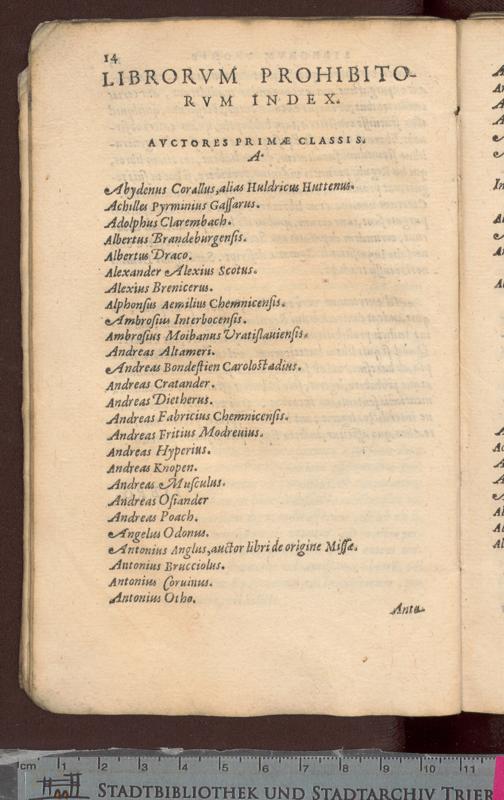 14
LIBRORVM PROHIBITO-
RVM INDEX.
AVCTORES PRIMÆ CLASSIS.
A.
Abydenus Corallus, alias Huldricus Huttenus.
Achilles Pyrminius Gaſſarus.
Adolphus Clarembach.
Albertus Brandeburgenſis.
Albertus Draco.
Alexander Alexius Scotus.
Alexius Brenicerus.
Alphonſus Aemilius Chemnicenſis.
Ambroſius Interbocenſis.
Ambroſius Moibanus Vratiſlauienſis.
Andreas Altameri.
Andreas Bondeſtien Caroloſtadius.
Andreas Cratander.
Andreas Dietherus.
Andreas Fabricius Chemnicenſis.
Andreas Fritius Modreuius.
Andreas Hyperius.
Andreas Knopen.
Andreas Muſculus.
Andreas Oſiander
Andreas Poach.
Angelus Odonus.
Antonius Anglus, auctor libri de origine Miſſæ.
Antonius Brucciolus.
Antonius Coruinus.
Antonius Otho.
Anto-
cm 1 2 3 4 5 6 7 8 9 10 11
STADTBIBLIOTHEK UND STADTARCHIV TRIER